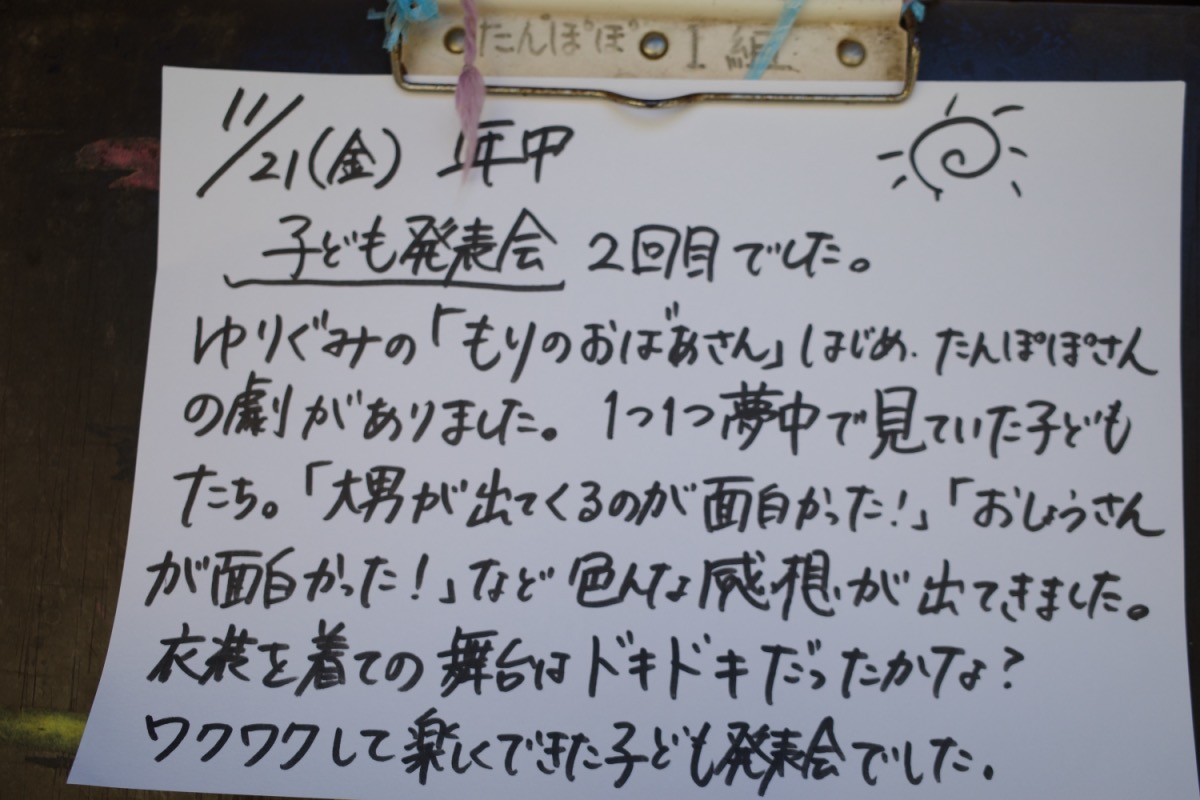 たんぽぽ I組
11/21(金) 年中
子ども発表会 2回目でした。
ゆりぐみの「もりのおばあさん」はじめ、たんぽぽさん
の劇がありました。1つ1つ夢中で見ていた子ども
たち。「大男が出てくるのが面白かった!」「おしょうさん
が面白かった!」など色んな感想が出てきました。
衣装を着ての舞台はドキドキだったかな?
ワクワクして楽しくできた子ども発表会でした.